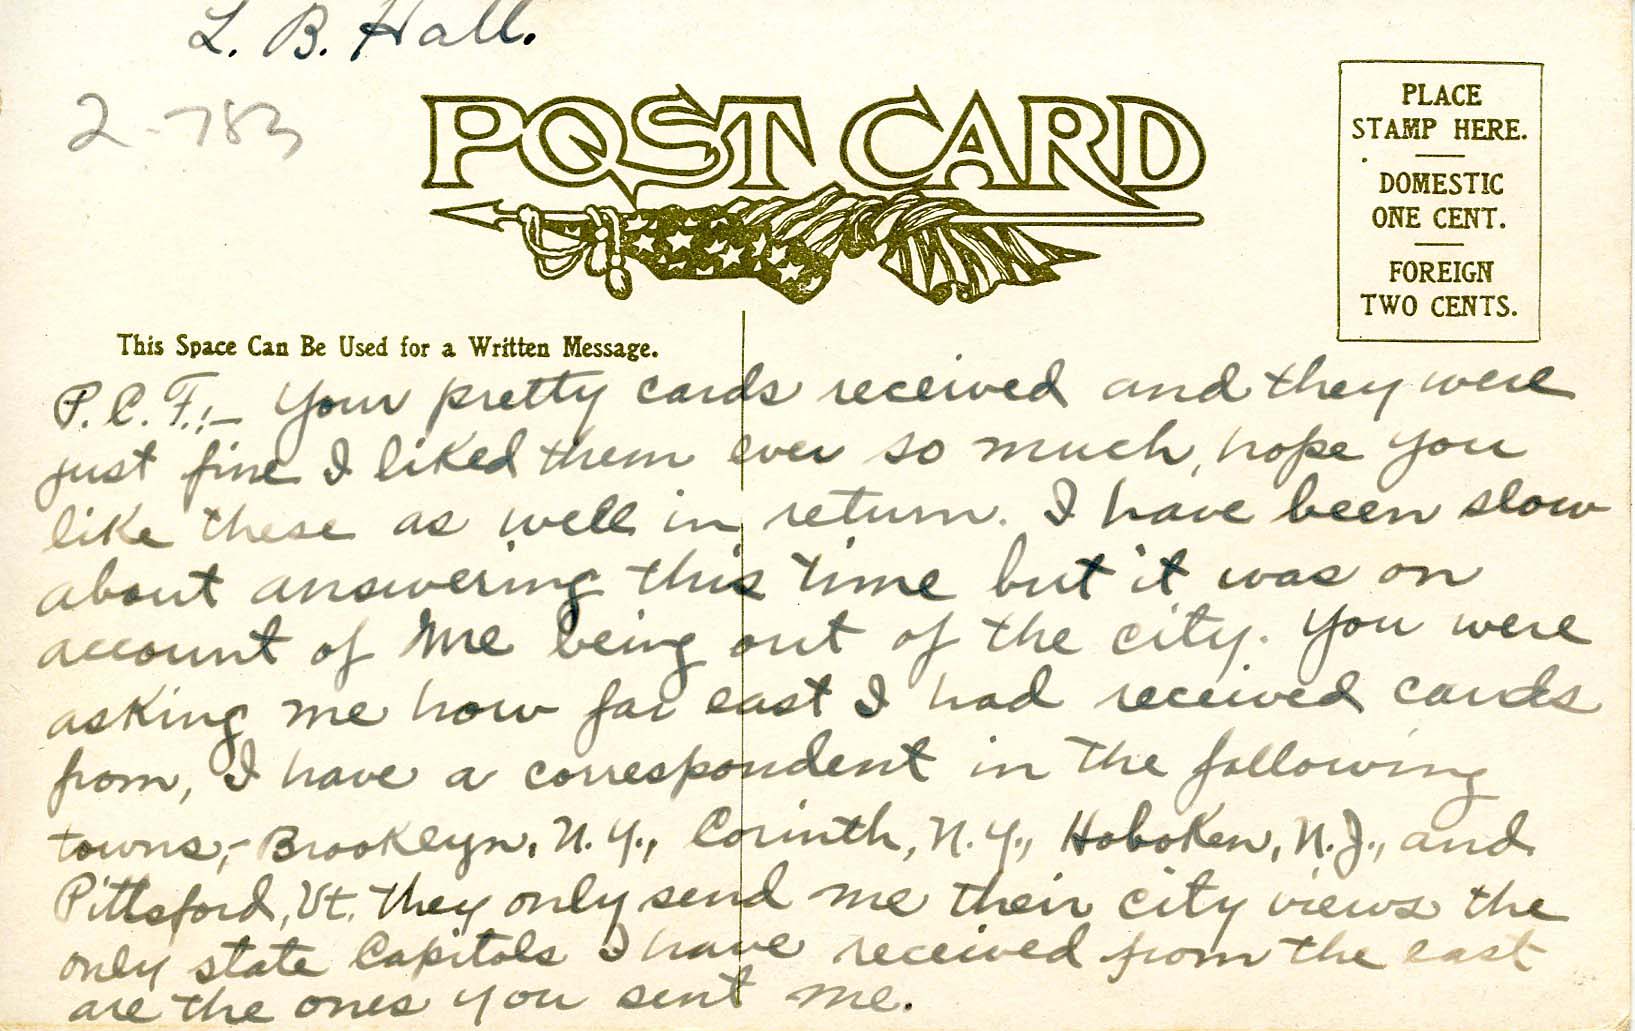 L. B. Hall.
2-783
POST CARD
PLACE
STAMP HERE.
DOMESTIC
ONE CENT.
FOREIGN
TWO CENTS.
This Space Can Be Used for a Written Message.
P.C.F.:- Your pretty cards received and they were
just fine I liked them ever so much, hope you
like these as well in return. I have been slow
about answering this time but it was on
account of me being out of the city. You were
asking me how far east I had received cards
from, I have a correspondent in the following
towns,- Brooklyn, N.Y., Corinth, N.Y., Hoboken, N.J., and
Pittsford, Vt. They only send me their city views the
only state Capitols I have received from the east
are the ones you sent me.